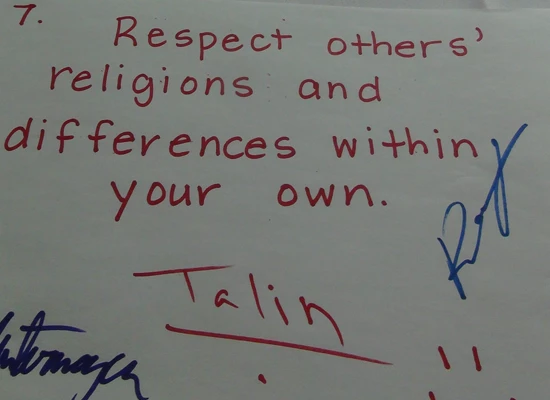 7.
Respect others'
religions and
differences within
your own.
Talin